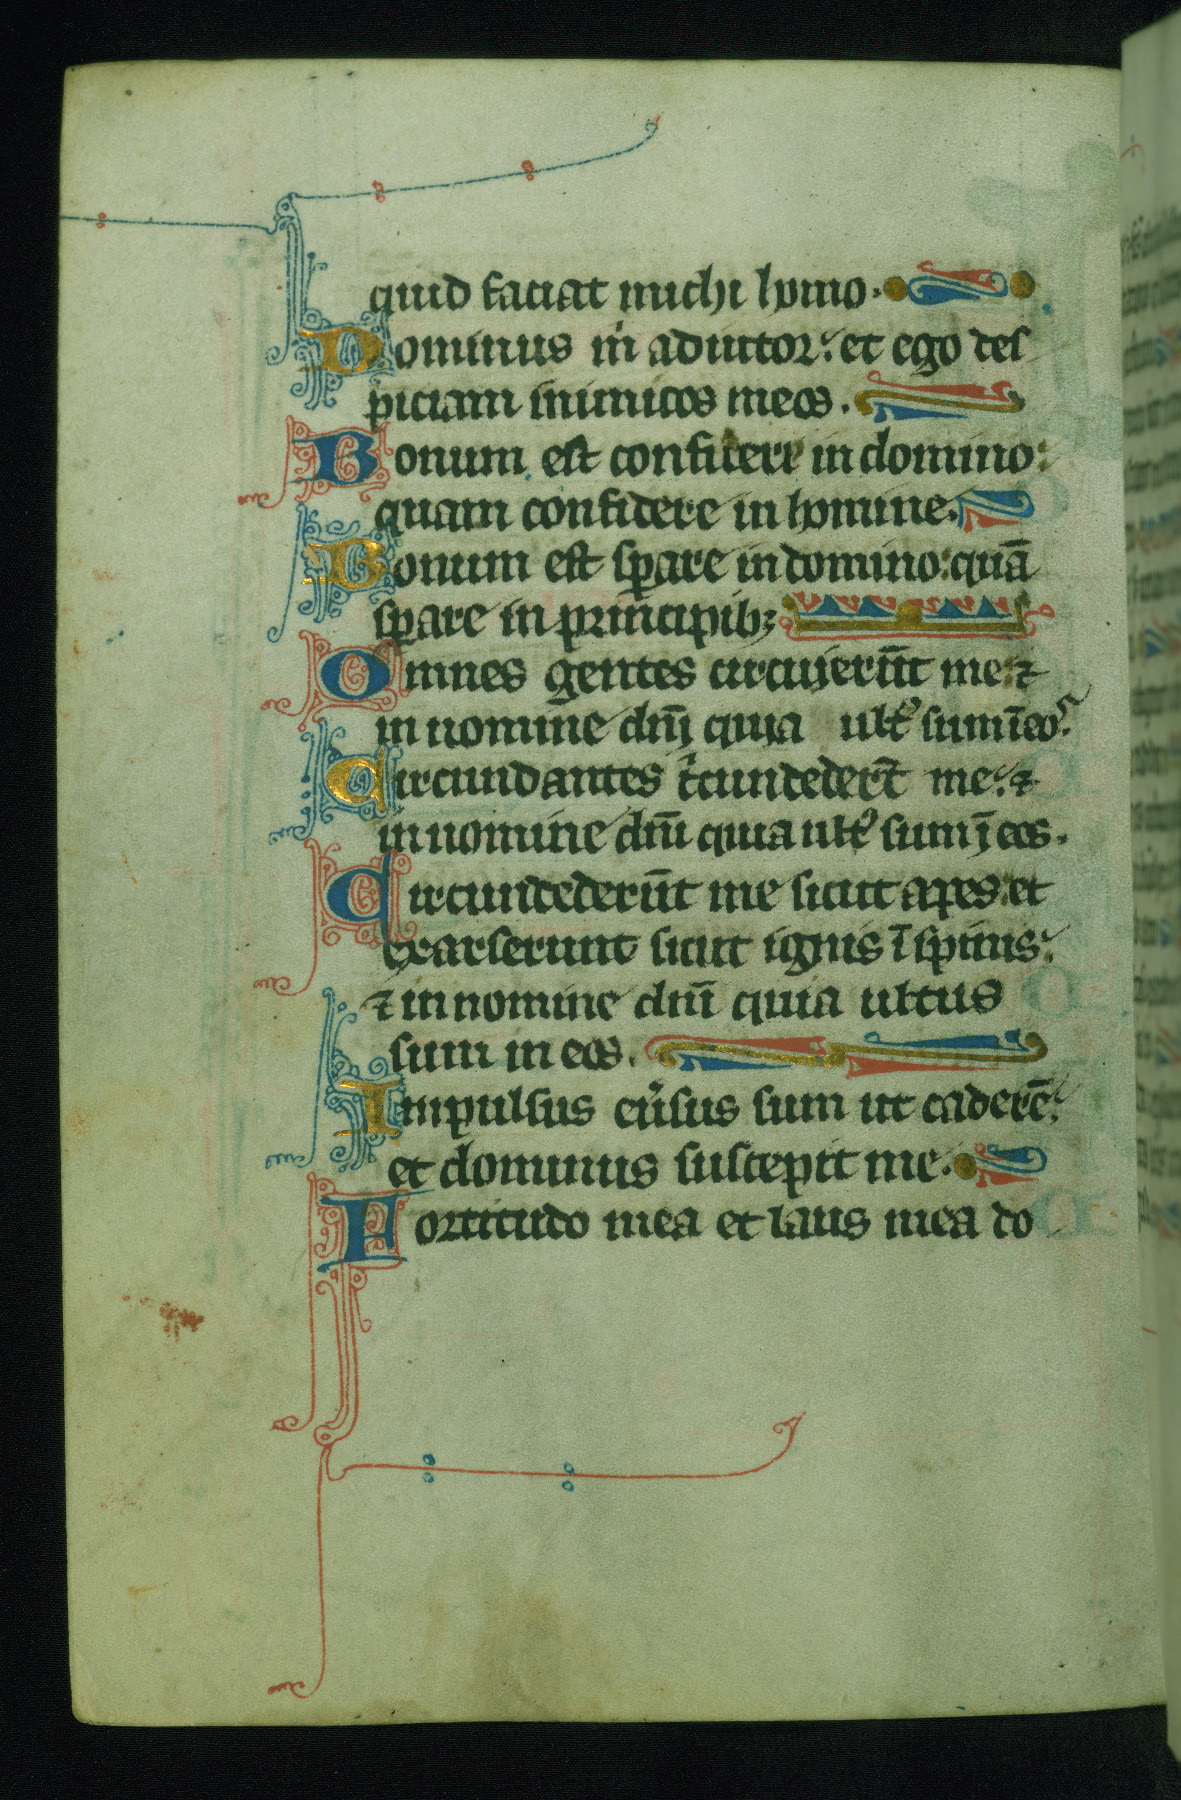 quid faciat michi homo.
Dominus m̓ adiutor: et ego des
piciam inimicos meos.
Bonum est confidere in domino:
quam confidere in homine.
Bonum est sꝑare in domino: quā
sꝑare in principibꝫ
Omnes gentes circuierūt me: ⁊
in nomine dn̄i quia ult᷒ sum ī eos
Circundantes c̓cundedert̄ me: ⁊
in nomine dn̄i quia ult᷒ sum ī eos.
Circundederūt me sicut apes: et
exarserunt sicut ignis ī spinis:
⁊ in nomine dn̄i quia ultus
sum in eos.
Impulsus eu̓sus sum ut caderē:
et dominus suscepit me.
Fortitudo mea et laus mea do